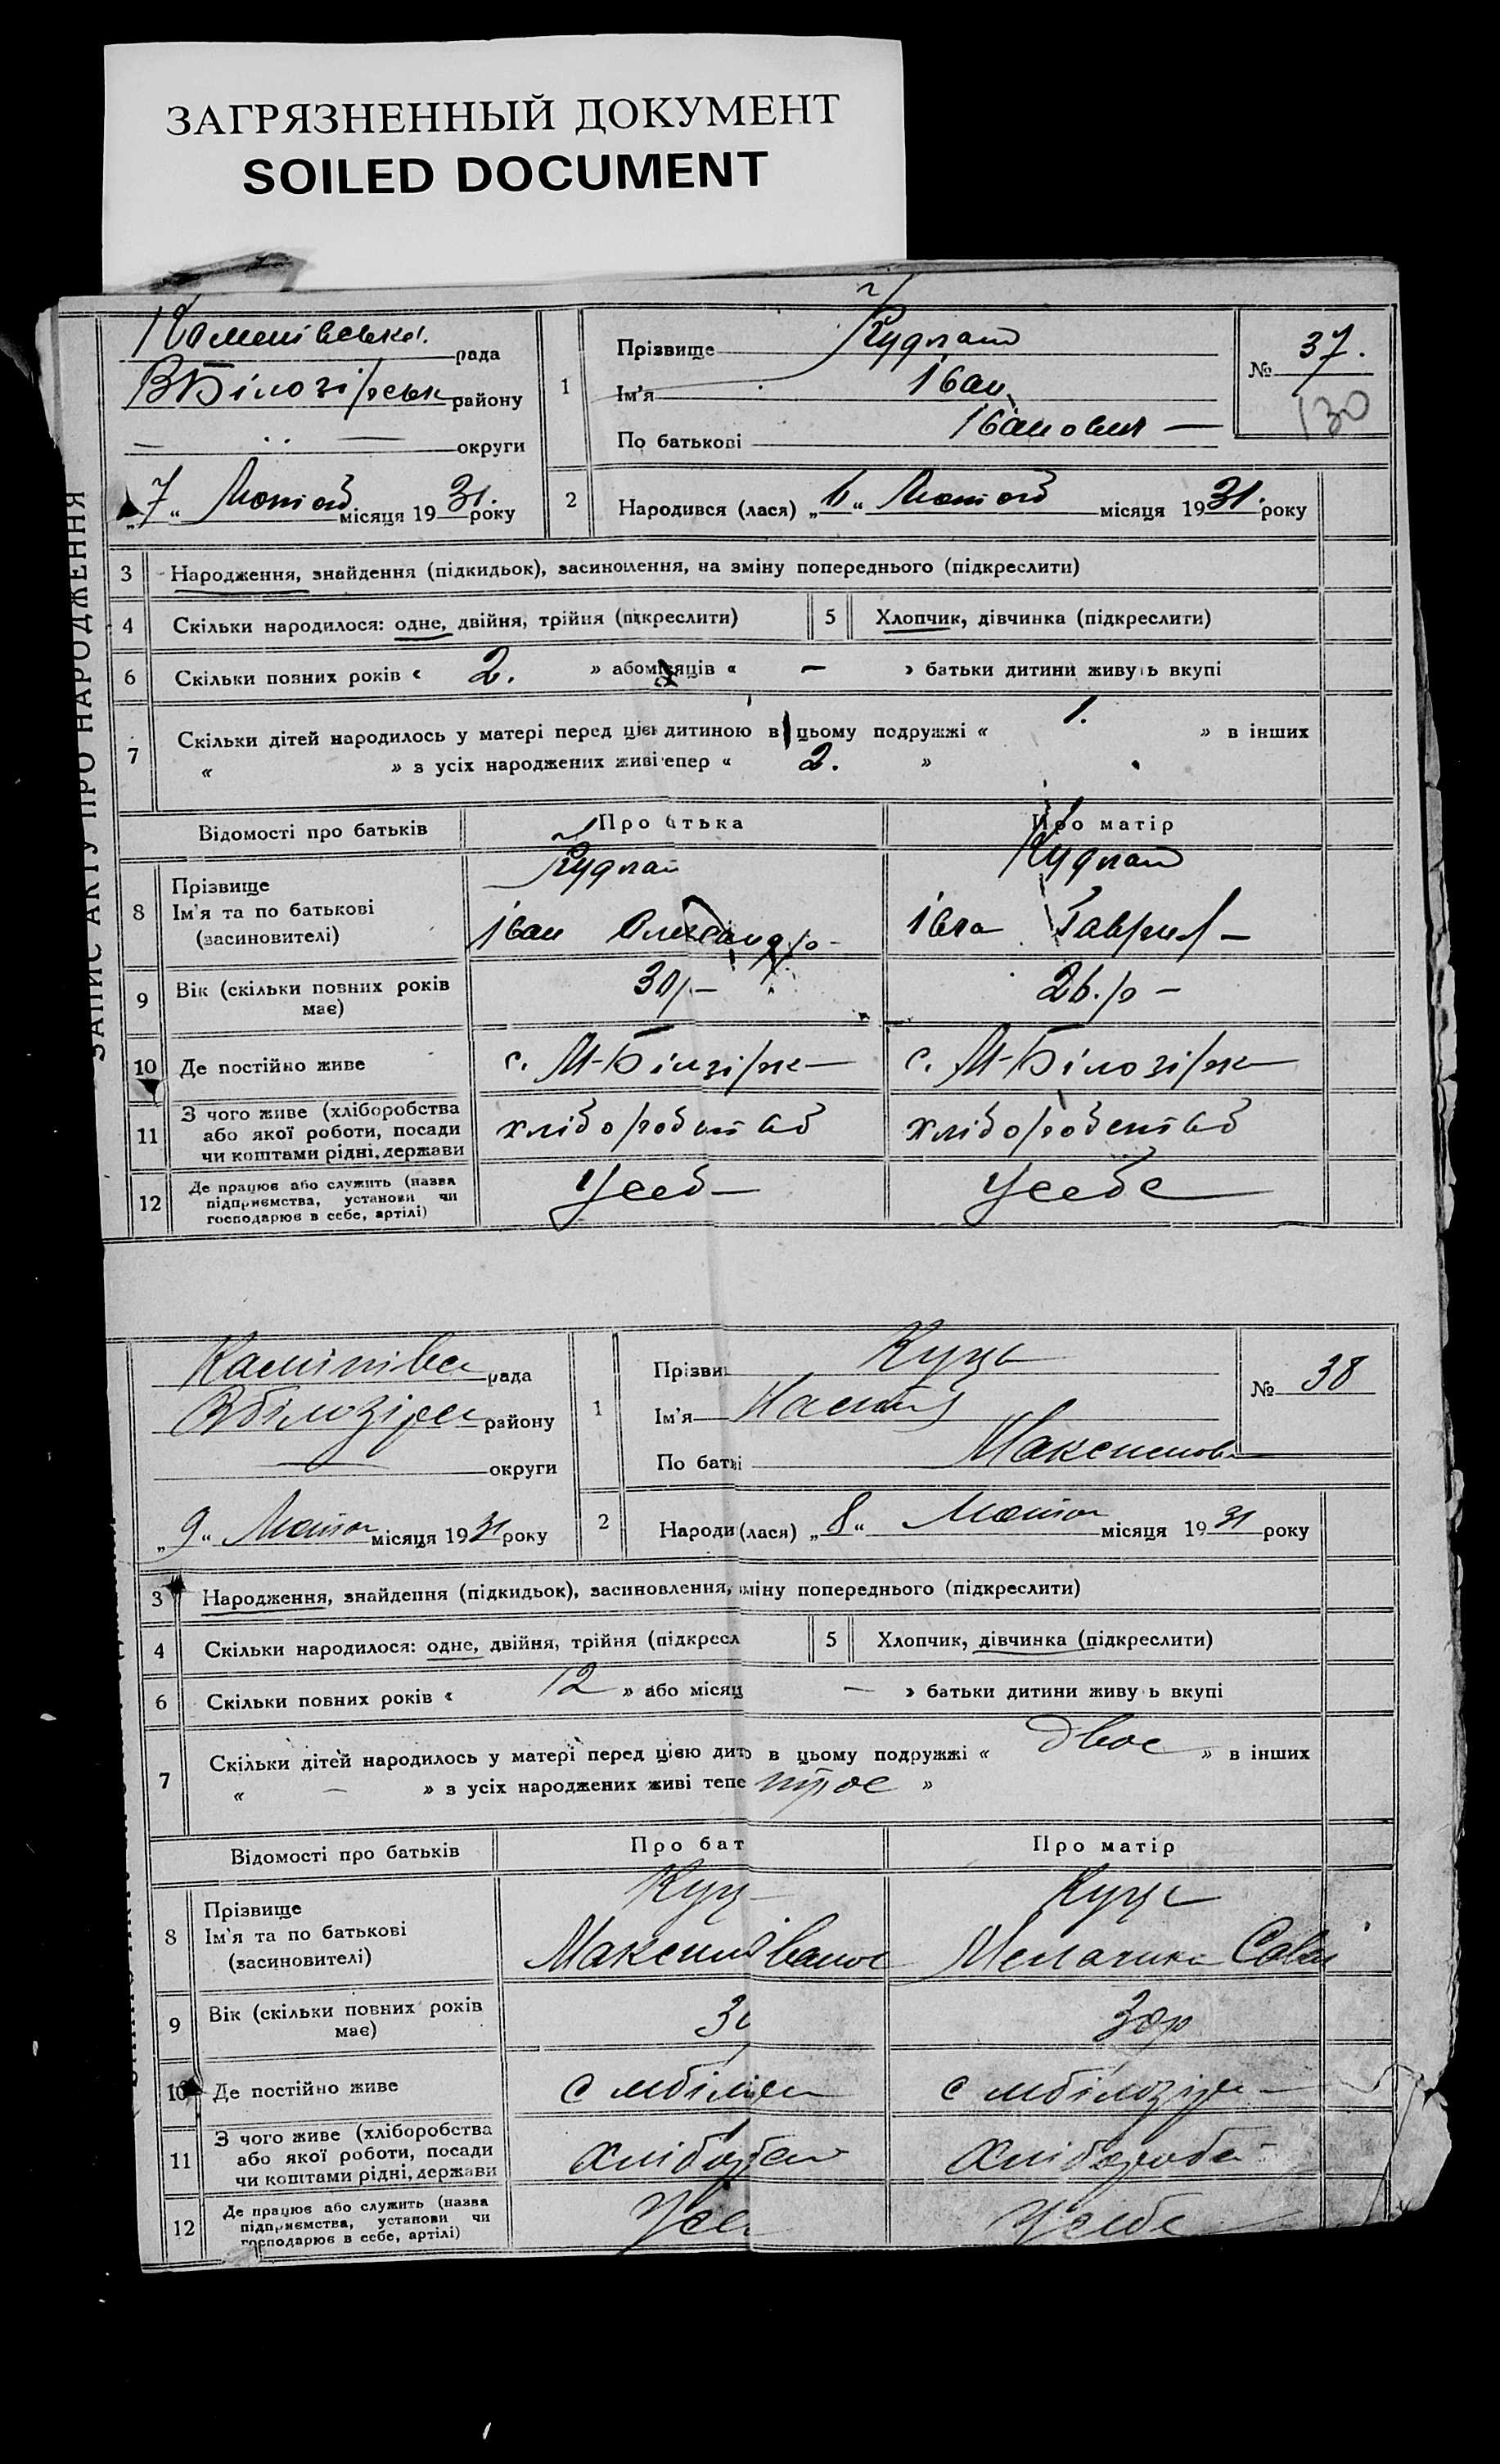 ЗАГРЯЗНЕННЫЙ ДОКУМЕНТ
SOILED DOCUMENT
ЗАПИС АКТУ ПРО НАРОДЖЕННЯ
рада
В Білозірськ району
округи
„7“ Лютого місяця 1931. року
1
Прізвище
Ім'я Іван
По батькові Іванович —
№ 37.
130
2
Народився (лася) „6“ Лютого місяця 1931. року
3 Народження, знайдення (підкидьок), засиновлення, на зміну попереднього (підкреслити)
4 Скільки народилося: одне, двійня, трійня (підкреслити)
5 Хлопчик, дівчинка (підкреслити)
6 Скільки повних років « 2. » або місяців « — » батьки дитини живуть вкупі
7 Скільки дітей народилось у матері перед цією дитиною в цьому подружжі « 1. » в інших
« » з усіх народжених живі тепер « 2. »
Відомості про батьків
Про батька
Про матір
8 Прізвище
Ім'я та по батькові
(засиновителі)
Іван Олександр-
Гаврил —
9 Вік (скільки повних років
має)
30р —
26.р —
10 Де постійно живе
с. М-Білозірк
с. М-Білозірк
11 З чого живе (хліборобства
або якої роботи, посади
чи коштами рідні, держави
хліборобств
хліборобств
12 Де працює або служить (назва
підприємства, установи чи
господарює в себе, артілі)
Усеб —
Усебе
рада
району
округи
„9“ місяця 1931 року
1
Прізви Куць
Ім'я Настя
По баткі Максимов
№ 38
2
Народи (лася) „8“ місяця 1931 року
3 Народження, знайдення (підкидьок), засиновлення, зміну попереднього (підкреслити)
4 Скільки народилося: одне, двійня, трійня (підкресл
5 Хлопчик, дівчинка (підкреслити)
6 Скільки повних років « 12 » або місяц — » батьки дитини живу ь вкупі
7 Скільки дітей народилось у матері перед цією дито в цьому подружжі « двоє » в інших
« — » з усіх народжених живі тепе троє »
Відомості про батьків
Про бат
Про матір
8 Прізвище
Ім'я та по батькові
(засиновителі)
Куц
Максим Іванов
Куць
Меланка Сав
9 Вік (скільки повних років
має)
30р
10 Де постійно живе
с мбілозір
11 З чого живе (хліборобства
або якої роботи, посади
чи коштами рідні, держави
хлібороб
12 Де працює або служить (назва
підприємства, установи чи
господарює в себе, артілі)
Усе
Усебе